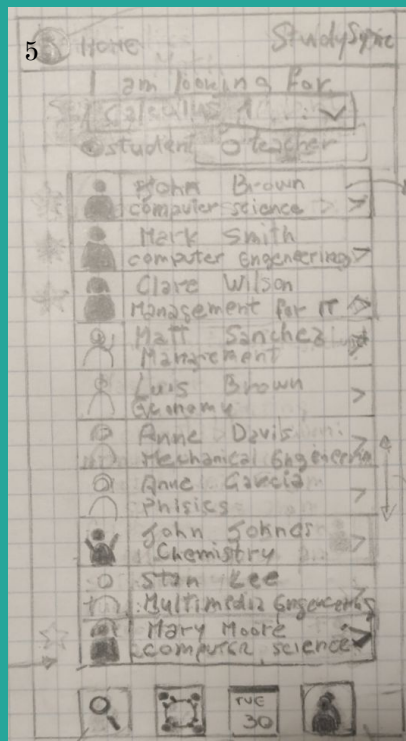 5 HOME StudySync
I am looking for
Calculus 1
student teacher
John Brown
computer science >
Mark Smith
computer Engeneering >
Clare Wilson
Management for IT >
Matt Sanchez
Management
Luis Brown
Economy >
Anne Davis >
Mechanical Engeneerin
Anne Gavecia
Phisics >
John Johnes
Chemistry >
Stan Lee
Multimedia Engeneering
Mary Moore
computer science >
TUE
30